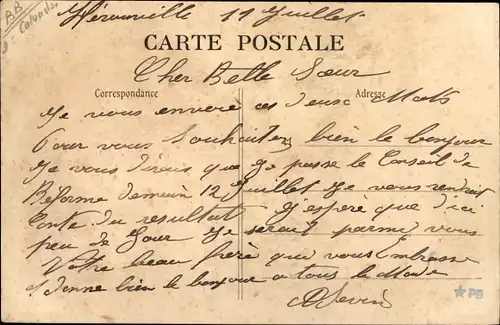 BB
Calvados
Hérouville 11 Juillet
CARTE POSTALE
Cher Belle Sœur
Correspondance
Adresse
Je vous envere ces deux Mots
Pour vous Souhaiter bien le bonjour
Je vous dirais que Je passe le Conseil de
Réforme demain 12 Juillet Je vous rendrait
Conte du resultat J'espère que d'ici
peu de Jour Je serait parmi vous
Votre beau frère qui vous Embrasse
donne bien le bonjour a tous le Mode
PB